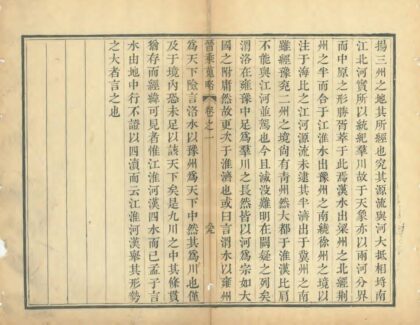 揚三州之地其所經也究其源流與河大抵相埒南
江北河實所以統紀羣川故于天象亦以兩河分界
而中原之形勝胥萃于此焉漢水出梁州之北經荆
州之半而合于江淮水出豫州之南繞徐州之境以
注于海比之江河源流未逮其半濟出于冀州之南
雖經豫兖二州之境尙有靑州然大都于淮漢比肩
不能與江河並駕也今且滅没難明在闕疑之列矣
渭洛在雍豫中足爲羣川之長然皆以河爲宗如大
國之附庸然故更次于淮濟也或曰言渭水以雍州
晉乘蒐略 卷之一
爲天下險言洛水以豫州爲天下中然其爲川也僅
及于境內恐未足以該天下矣是九川之中其條貫
猶存而經緯可見者惟江淮河漢四水而已孟子言
水由地中行不證以四瀆而云江淮河漢舉其形勢
之大者言之也